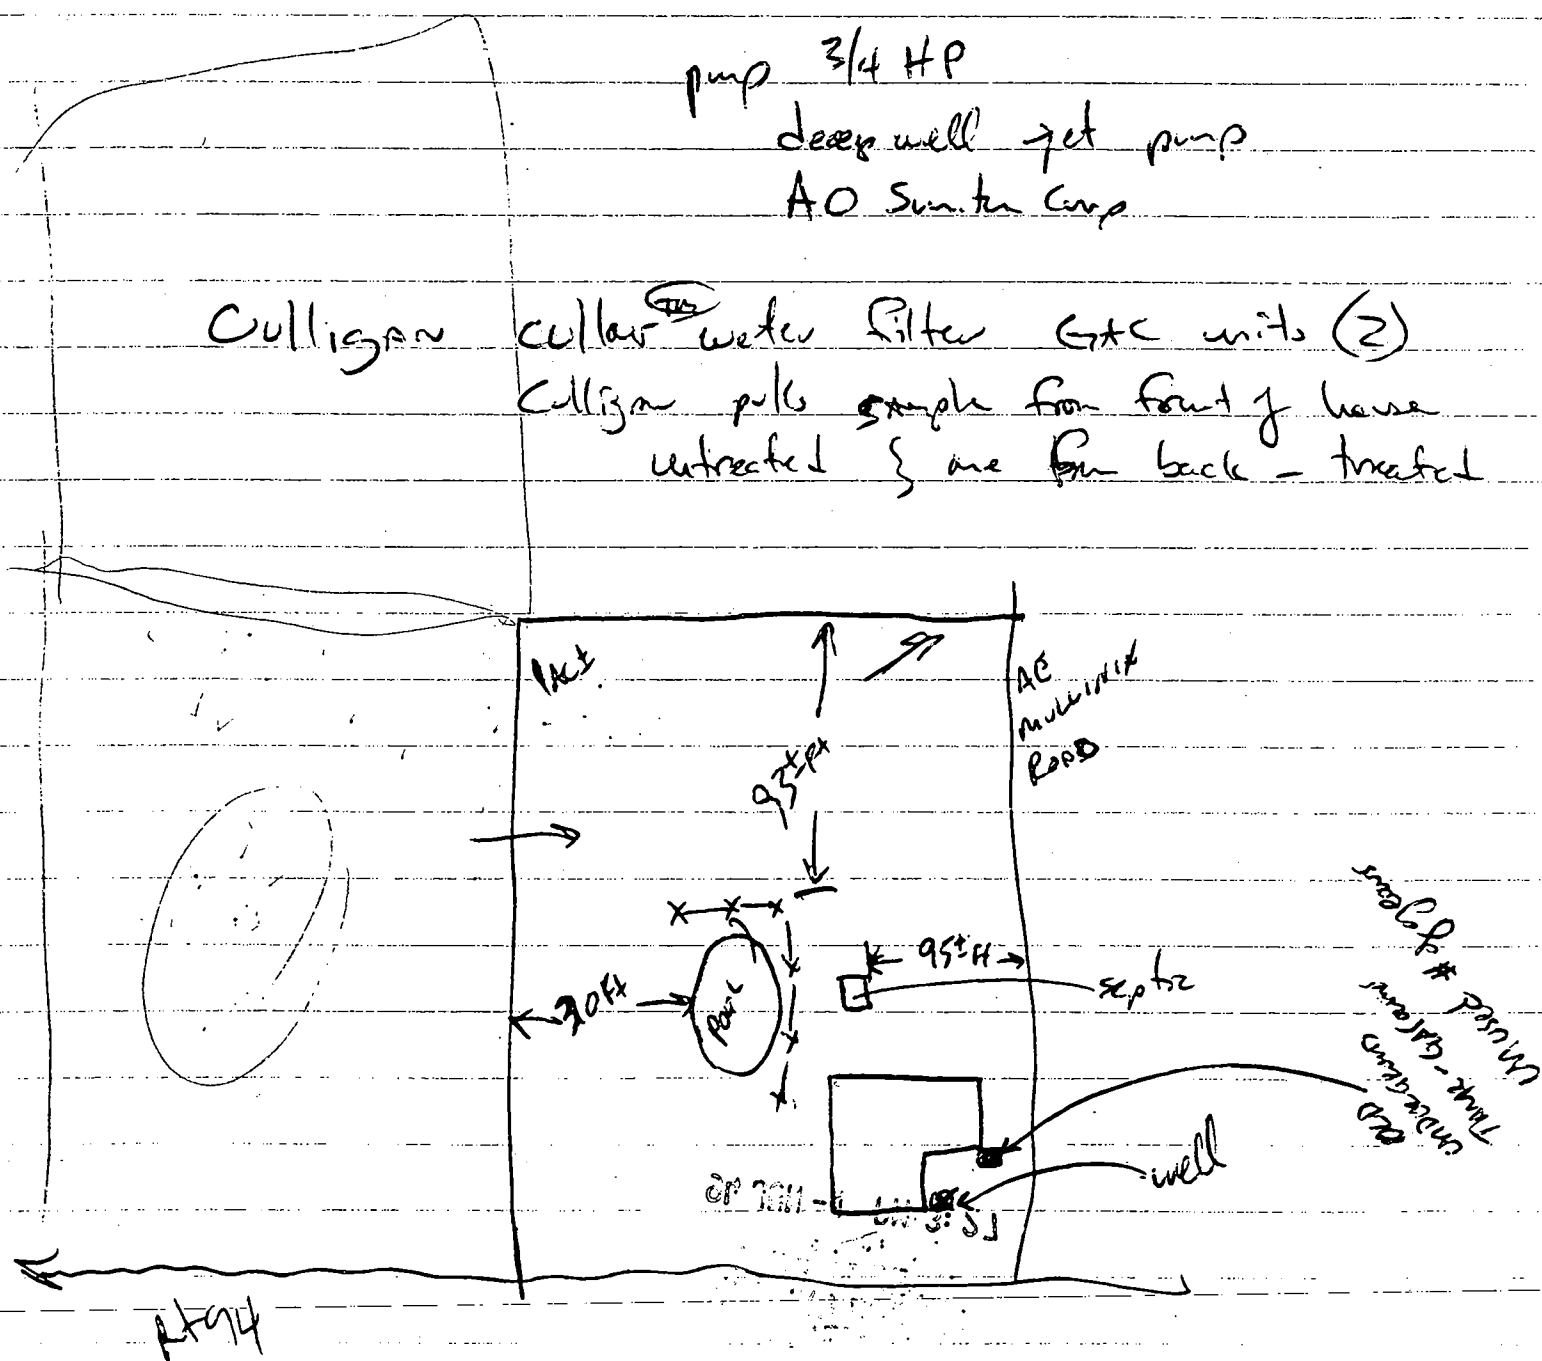 pump 3/4 HP
deep well jet pump
AO Smith Corp
Culligan cullar TM water filter GAC units (2)
Culligan pulls sample from front of house
untreated } one from back - treated
1AC±
AE
MULLINIX
ROAD
93± ft
95± ft
septic
30 Ft
POOL
well
OLD
UNDERGROUND
TANK -
UNUSED # of years
Rt 94